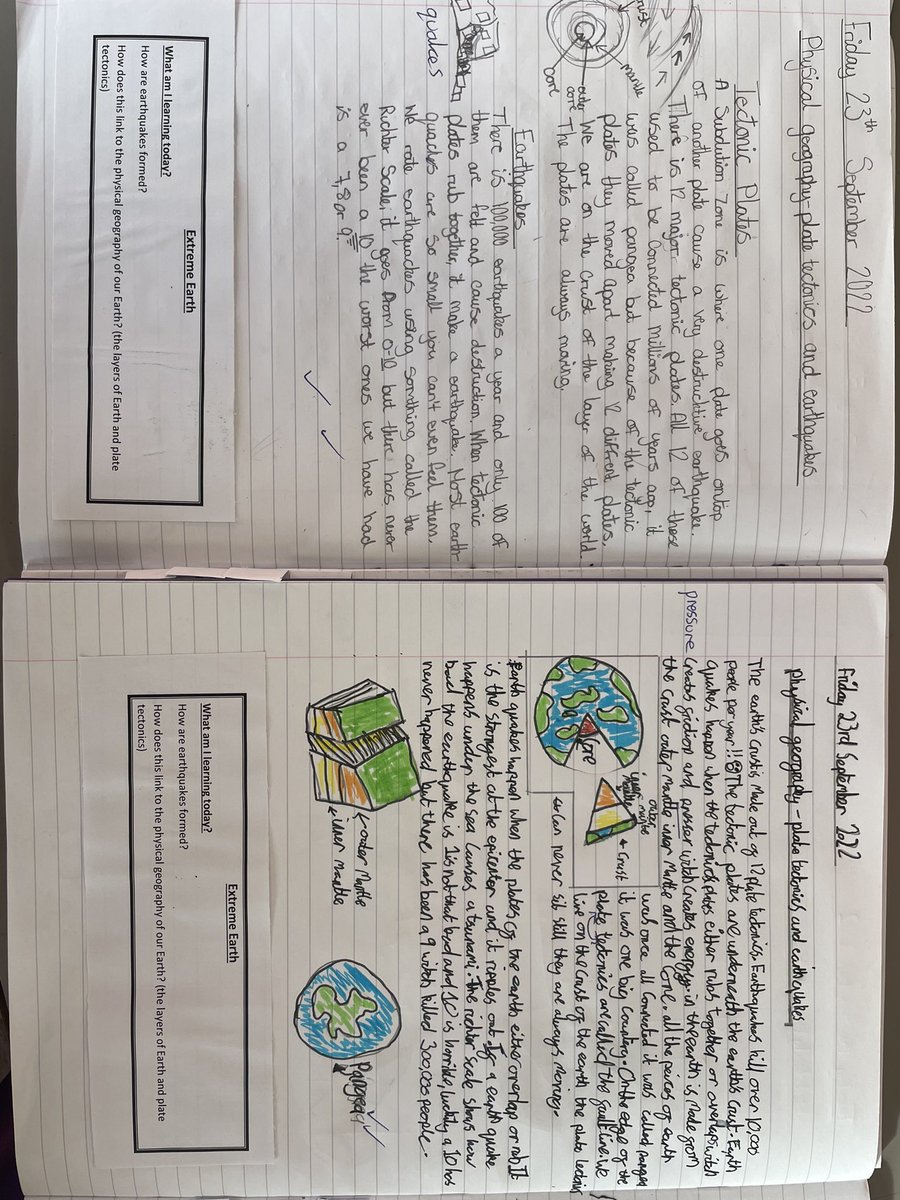 Friday 23th September 2022
Physical geography-plate tectonics and earthquakes
Tectonic Plates
A Subdution Zone is where one plate goes ontop
of another plate cause a very destrucktive earthquake.
There is 12 major tectonic plates. All 12 of these
used to be connected millions of years ago, it
was called pangea but because of the tectonic
plates they moved apart making 12 diffrent plates.
We are on the crust of the layer of the world.
The plates are always moving.
crust
mantle
outer
core
core
Earthquakes
There is 100,000 earthquakes a year and only 100 of
them are felt and cause destruction. When tectonic
plates rub together, it make a earthquake. Most earth-
quackes are so small you can't even feel them.
We rate earthquackes using somthing called the
Richter Scale, it goes from 0-10 but there has never
ever been a 10 the worst ones we have had
is a 7, 8 or 9.
quakes
Extreme Earth
What am I learning today?
How are earthquakes formed?
How does this link to the physical geography of our Earth? (the layers of Earth and plate
tectonics)
Friday 23rd September 2022
physical geography - plate tectonics and earthquakes
The earth's crust is made out of 12 plate tectonics. Earthquakes kill over 10,000
people per year!! The tectonic plates are underneath the earth's crust. Earth
quakes happen when the tectonics plates either rubs together or overlaps witch
Creates friction and pressor witch creates energy. in the earth is made from
the crust outer mantle inner mantle and the Core. all the peices of earth
was once all connected it was called pangea
it was one big country. On the edge of the
plate tectonics are called the fault line. We
live on the crust of the earth the plate tectonics
can never sit still they are always moving.
pressure
Core
inner mantle
outer mantle
Crust
Earth quakes happen when the plates of the earth either overlap or rub. It
is the strongest at the epicenter and it ripples out. If a earth quake
happens under the sea causes a tsunami. The richter Scale shows how
bad the earthquake is 1 is not that bad and 10 is horrible, luckily a 10 has
never happened but there has been a 9 witch killed 300,000 people.
outer Mantle
inner mantle
Pangea
Extreme Earth
What am I learning today?
How are earthquakes formed?
How does this link to the physical geography of our Earth? (the layers of Earth and plate
tectonics)